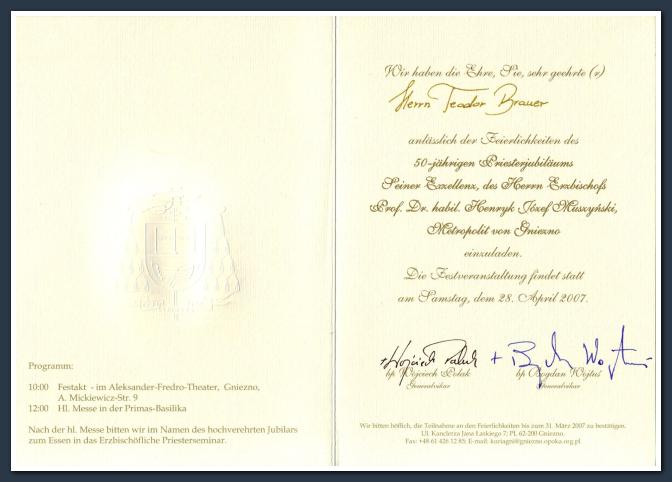 Programm:
10:00 Festakt - im Aleksander-Fredro-Theater, Gniezno,
A. Mickiewicz-Str. 9
12:00 Hl. Messe in der Primas-Basilika
Nach der hl. Messe bitten wir im Namen des hochverehrten Jubilars
zum Essen in das Erzbischöfliche Priesterseminar.
Wir haben die Ehre, Sie, sehr geehrte (r)
Herrn Teodor Brauer
anlässlich der Feierlichkeiten des
50-jährigen Priesterjubiläums
Seiner Exzellenz, des Herrn Erzbischofs
Prof. Dr. habil. Henryk Józef Muszyński,
Metropolit von Gniezno
einzuladen.
Die Festveranstaltung findet statt
am Samstag, dem 28. April 2007.
+ Wojciech Polak + Bogdan Wojtuś
bp Wojciech Polak bp Bogdan Wojtuś
Generalvikar Generalvikar
Wir bitten höflich, die Teilnahme an den Feierlichkeiten bis zum 31. März 2007 zu bestätigen.
Ul. Kanclerza Jana Łaskiego 7; PL 62-200 Gniezno.
Fax: +48 61 426 12 85; E-mail: kuriagni@gniezno.opoka.org.pl